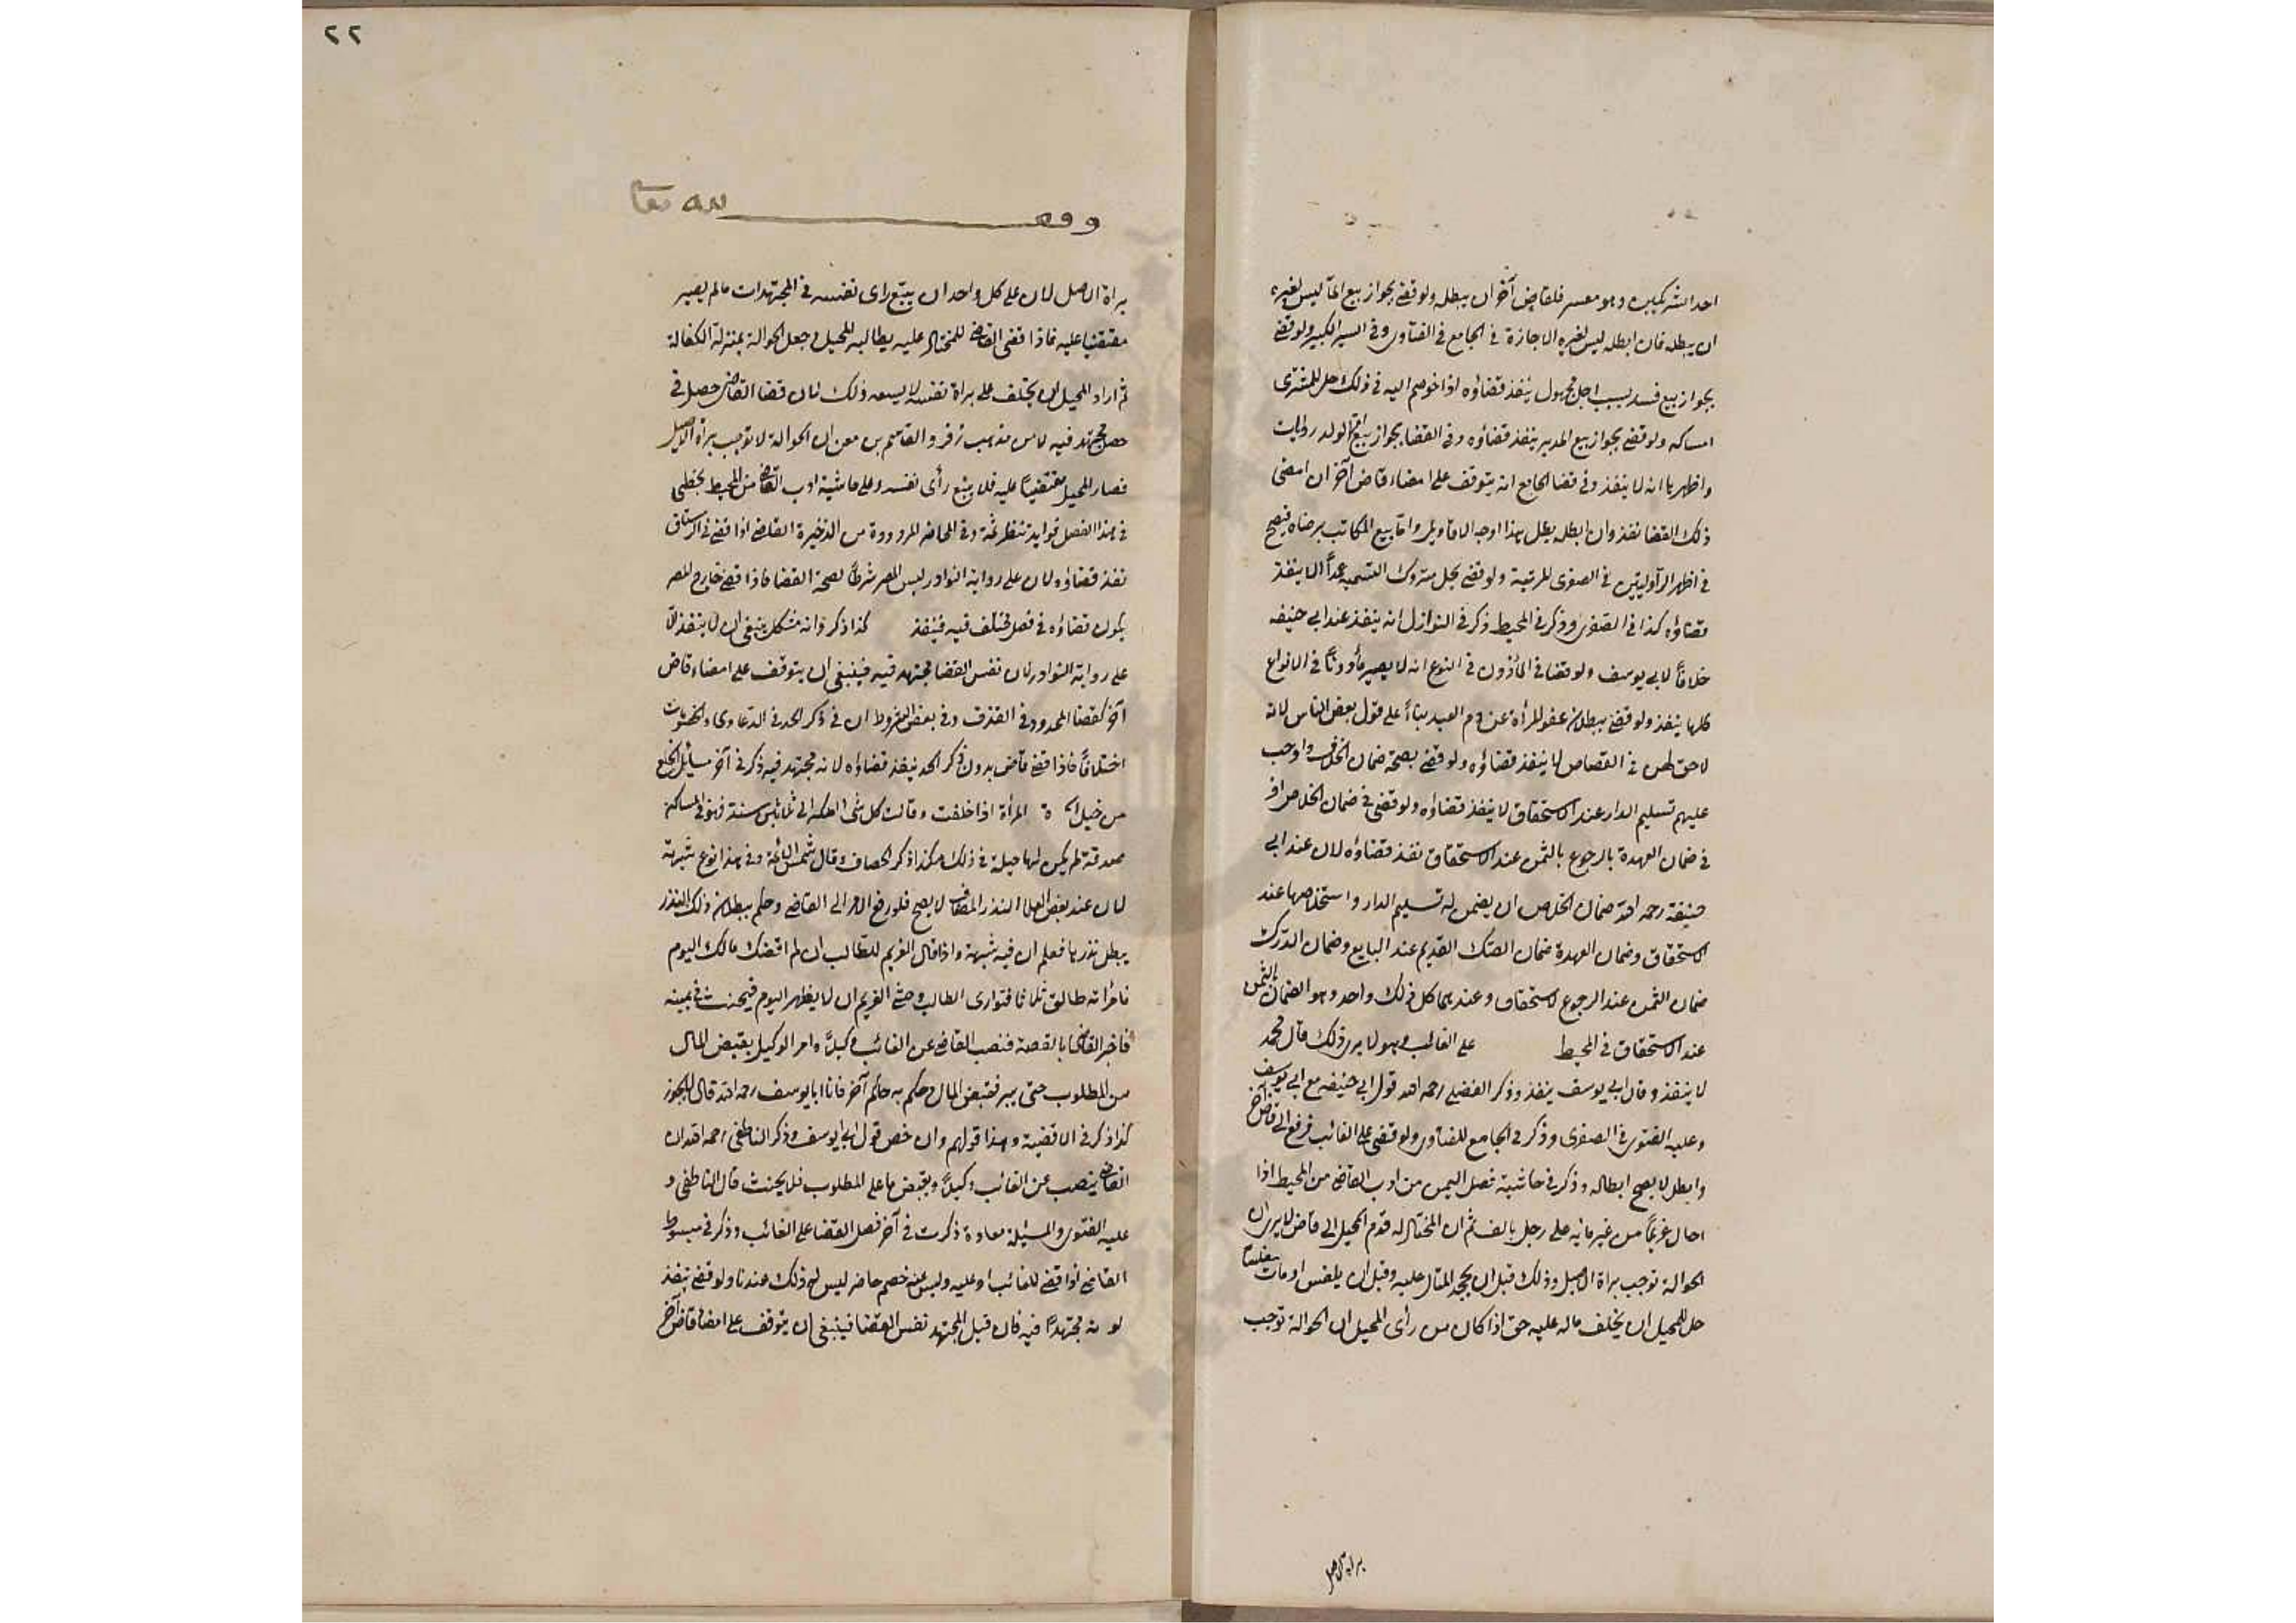 احد الشريكين وهو معسر فلقاض آخر ان يبطله ولو قضى بجواز بيع الماء ليس لغيره
ان يبطله فان ابطله ليس لغيره الاجازة في الجامع في الفتاوى وفي السير الكبير ولو قضى
بجواز بيع فسد بسبب اجل مجهول ينفذ قضاؤه اذا خوصم اليه في ذلك حل للمشترى
امساكه ولو قضى بجواز بيع المدبر ينفذ قضاؤه وفى القضا بجواز بيع ام الولد روايات
واظهرها انه لا ينفذ وفى قضا الجامع انه يتوقف على امضاء قاض آخر ان امضى
ذلك القضا نفذ وان ابطله بطل هذا اوجه الاقاويل واما بيع المكاتب برضاه فيصح
في اظهر الروايتين في الصغرى المرتبة ولو قضى بحل متروك التسمية عمداً لا ينفذ
قضاؤه كذا في الصغرى وذكر في المحيط ذكر في النوازل انه ينفذ عند ابي حنيفه
خلافاً لابي يوسف ولو قضا في المأذون في النوع انه لا يصير مأذوناً في الانواع
كلها ينفذ ولو قضى ببطلان عفو المرأة عن دم العبد بناءً على قول بعض الناس لانه
لا حق لهن في القصاص لا ينفذ قضاؤه ولو قضى بصحة ضمان الخلاص واوجب
عليهم تسليم الدار عند الاستحقاق لا ينفذ قضاؤه ولو قضى في ضمان الخلاص او
في ضمان العهدة بالرجوع بالثمن عند الاستحقاق نفذ قضاؤه لان عند ابي
حنيفة رحمه الله ضمان الخلاص ان يضمن له تسليم الدار واستخلاصها عند
الاستحقاق وضمان العهدة ضمان الصك القديم عند البايع وضمان الدرك
ضمان الثمن عند الرجوع لاستحقاق وعندهما كل ذلك واحد وهو الضمان بالثمن
عند الاستحقاق في المحيط على الغائب وهو لا يرى ذلك قال محمد
لا ينفذ وقال ابي يوسف ينفذ وذكر الفضلي رحمه الله قول ابي حنيفه مع ابي يوسف
وعليه الفتوى في الصغرى وذكر في الجامع للفتاوى ولو قضى على الغائب فرفع الى قاض آخر
وابطل لا يصح ابطاله وذكر في حاشية فصل اليمين من ادب القاضى من المحيط اذا
احال غريماً من غرمائه على رجل بالف ثم ان المحتال له قدم المحيل الى قاض لا يرى ان
الحوالة توجب براة الاصيل وذلك قبل ان يجحد المحتال عليه وقبل ان يفلس او مات مفلسا
حل للمحيل ان يحلف ماله عليه حق اذا كان من رأى المحيل ان الحوالة توجب
براة الاصل
٢٢
وقف لله تعا
براة الاصل لان على كل واحد ان يتبع راى نفسه في المجتهدات مالم يصير
مقتضيا عليه فاذا قضى القاضى للمحتال عليه يطالبه المحيل وجعل الحوالة بمنزلة الكفالة
ثم اراد المحيل ان يحلف على براة نفسه لا يسعه ذلك لان قضا القاضى حصل في
فصل مجتهد فيه لان من مذهب زفر والقاسم بن معن ان الحوالة لا توجب براة الاصيل
فصار المحيل مقتضيا عليه فلا يتبع رأى نفسه وعلى حاشية ادب القاضى من المحيط بخطى
في هذا الفصل فوايد تنظر ثمة وفى المحاضر المردودة من الذخيرة القاضى اذا قضى في الرستاق
نفذ قضاؤه لان على رواية النوادر ليس المصر شرطاً لصحة القضا فاذا قضى خارج المصر
يكون قضاؤه في فصل مختلف فيه فينفذ كذا ذكر وانه مشكل ينبغى ان لا ينفذ لا
على رواية النوادر لان نفس القضا مجتهد فيه فينبغى ان يتوقف على امضاء قاض
آخر كقضا المحدود في القذف وفى بعض الشروط ان في ذكر الحد في الدعاوى والخصومات
اختلافاً فاذا قضى قاض بدون ذكر الحد ينفذ قضاؤه لانه مجتهد فيه ذكر في آخر مسايل الخلع
من حيل المرأة اذا حلفت وقالت كل شى املكه الى ثلاثين سنة فهو في المساكين
صدقة لم يكن لها حيلة في ذلك هكذا ذكر الخصاف وقال شمس الائمة وفى هذا نوع شبهة
لان عند بعض العلما النذر المضاف لا يصح فلو رفع الامر الى القاضى وحكم ببطلان ذلك النذر
يبطل نذرها فعلم ان فيه شبهة واذا قال الغريم للطالب ان لم اقضك مالك اليوم
فامرأته طالق ثلاثا فتوارى الطالب وخشى الغريم ان لا يظهر اليوم فيحنث في يمينه
فاخبر القاضى بالقصة فنصب القاضى عن الغائب وكيلاً وامر الوكيل بقبض المال
من المطلوب حتى يبر فقبض المال وحكم به حاكم آخر فان ابا يوسف رحمه الله قال لا يجوز
كذا ذكر في الاقضية وهذا قولهم وان خص قول ابي يوسف وذكر الناطفى رحمه الله ان
القاضى ينصب عن الغائب وكيلاً ويقبض ما على المطلوب فلا يحنث قال الناطفى و
عليه الفتوى والمسئلة معادة ذكرت في آخر فصل القضا على الغائب وذكر في مبسوط
القاضى اذا قضى للغائب او عليه وليس عنه خصم حاضر ليس له ذلك عندنا ولو قضى ينفذ
مجتهدا فيه فان قيل المجتهد نفس القضا فينبغى ان يتوقف على امضا قاض آخر